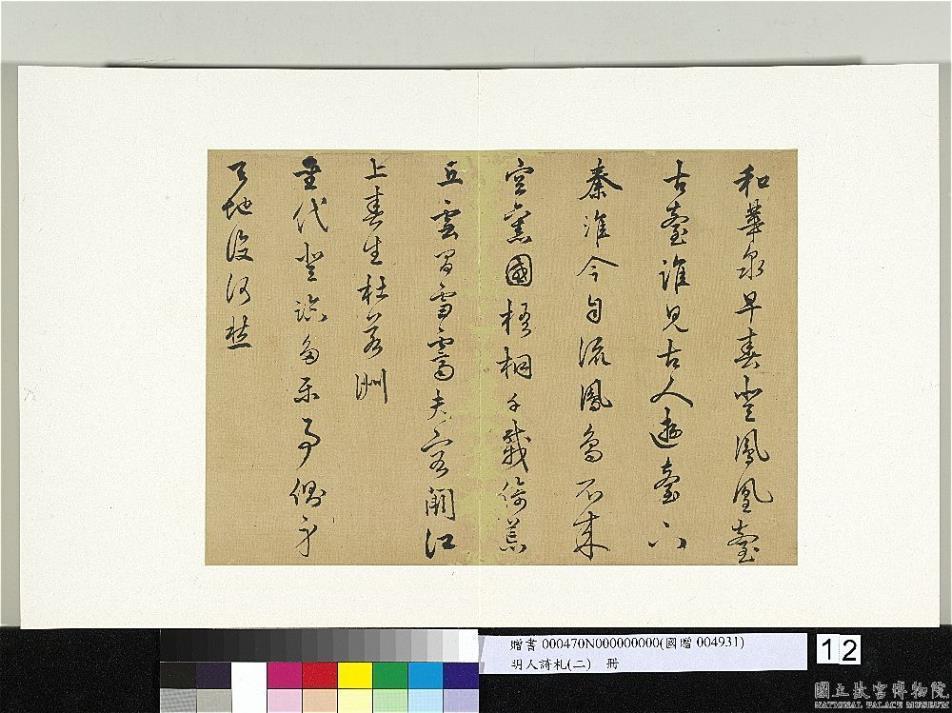 和華泉早春登鳳凰臺
古臺誰見古人遊臺下
秦淮今自流鳳鳥不來
空舊國梧桐千載倚荒
丘雲
上春生杜若洲
聖代登臨多樂事側身
天地復何愁
贈書 000470N000000000(國贈 004931)
明人詩札(二) 冊
12
國立故宮博物院
NATIONAL PALACE MUSEUM